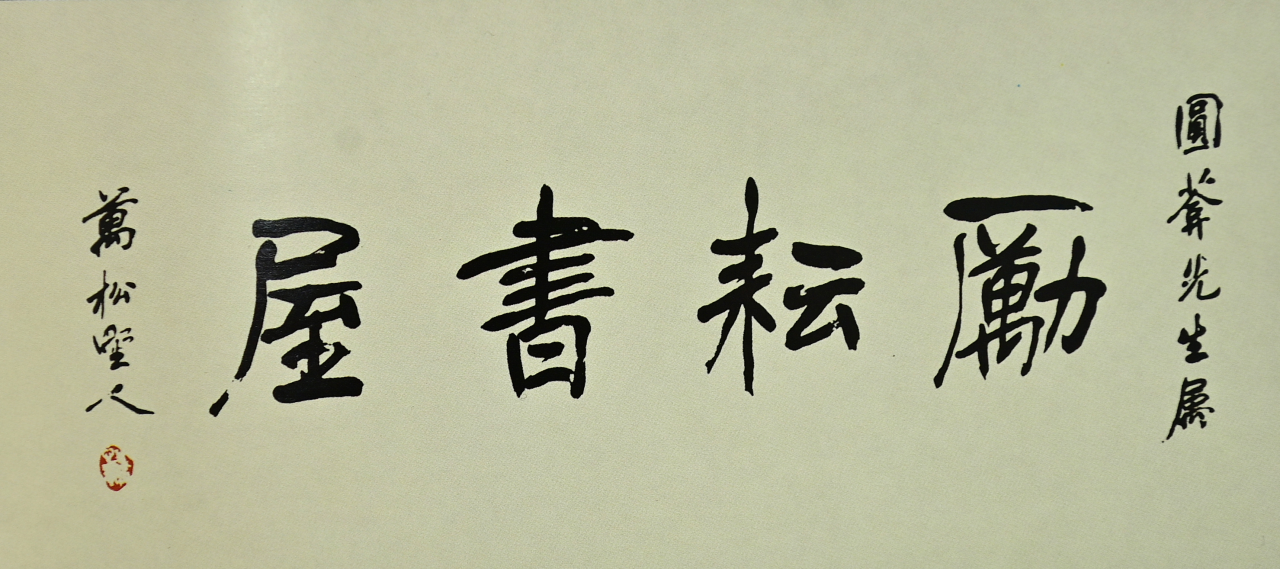 圓庵先生屬
勵耘書屋
萬松野人